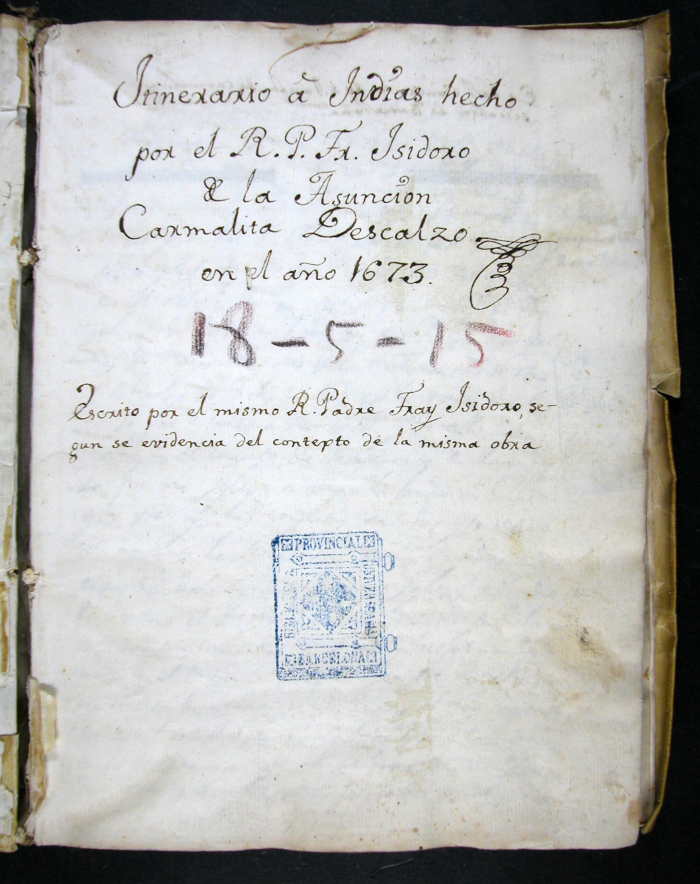 Itinerario à Indias hecho
por el R. P. Fr. Isidoro
de la Asuncion
Carmalita Descalzo
en el año 1673.
18-5-15
Escrito por el mismo R. Padre Fray Isidoro, se-
gun se evidencia del contepto de la misma obra
PROVINCIAL
BARCELONA